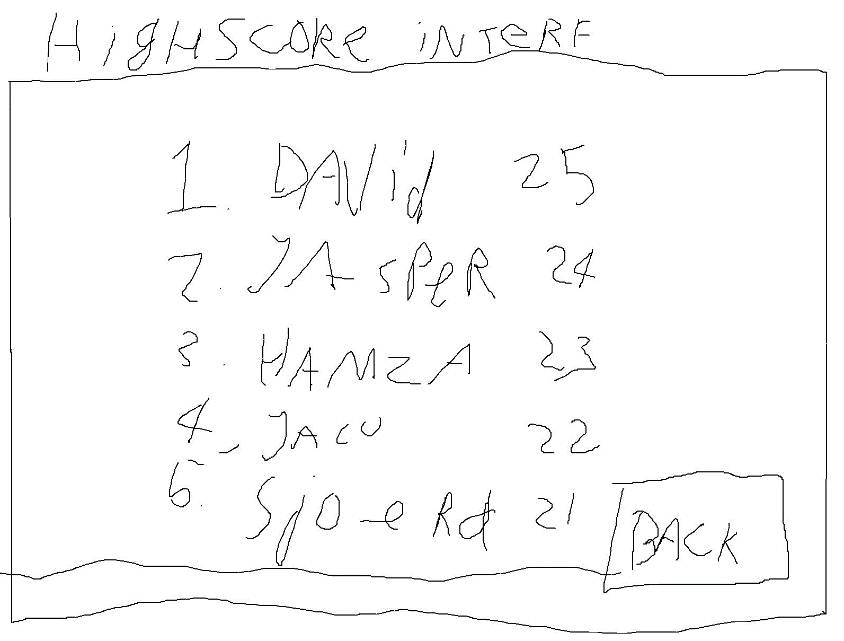 HigHSCORe iNTeRF
1. DAVid 25
2. JAsPeR 24
3. HAMZA 23
4. JACO 22
5. SjOeRd 21
BACK